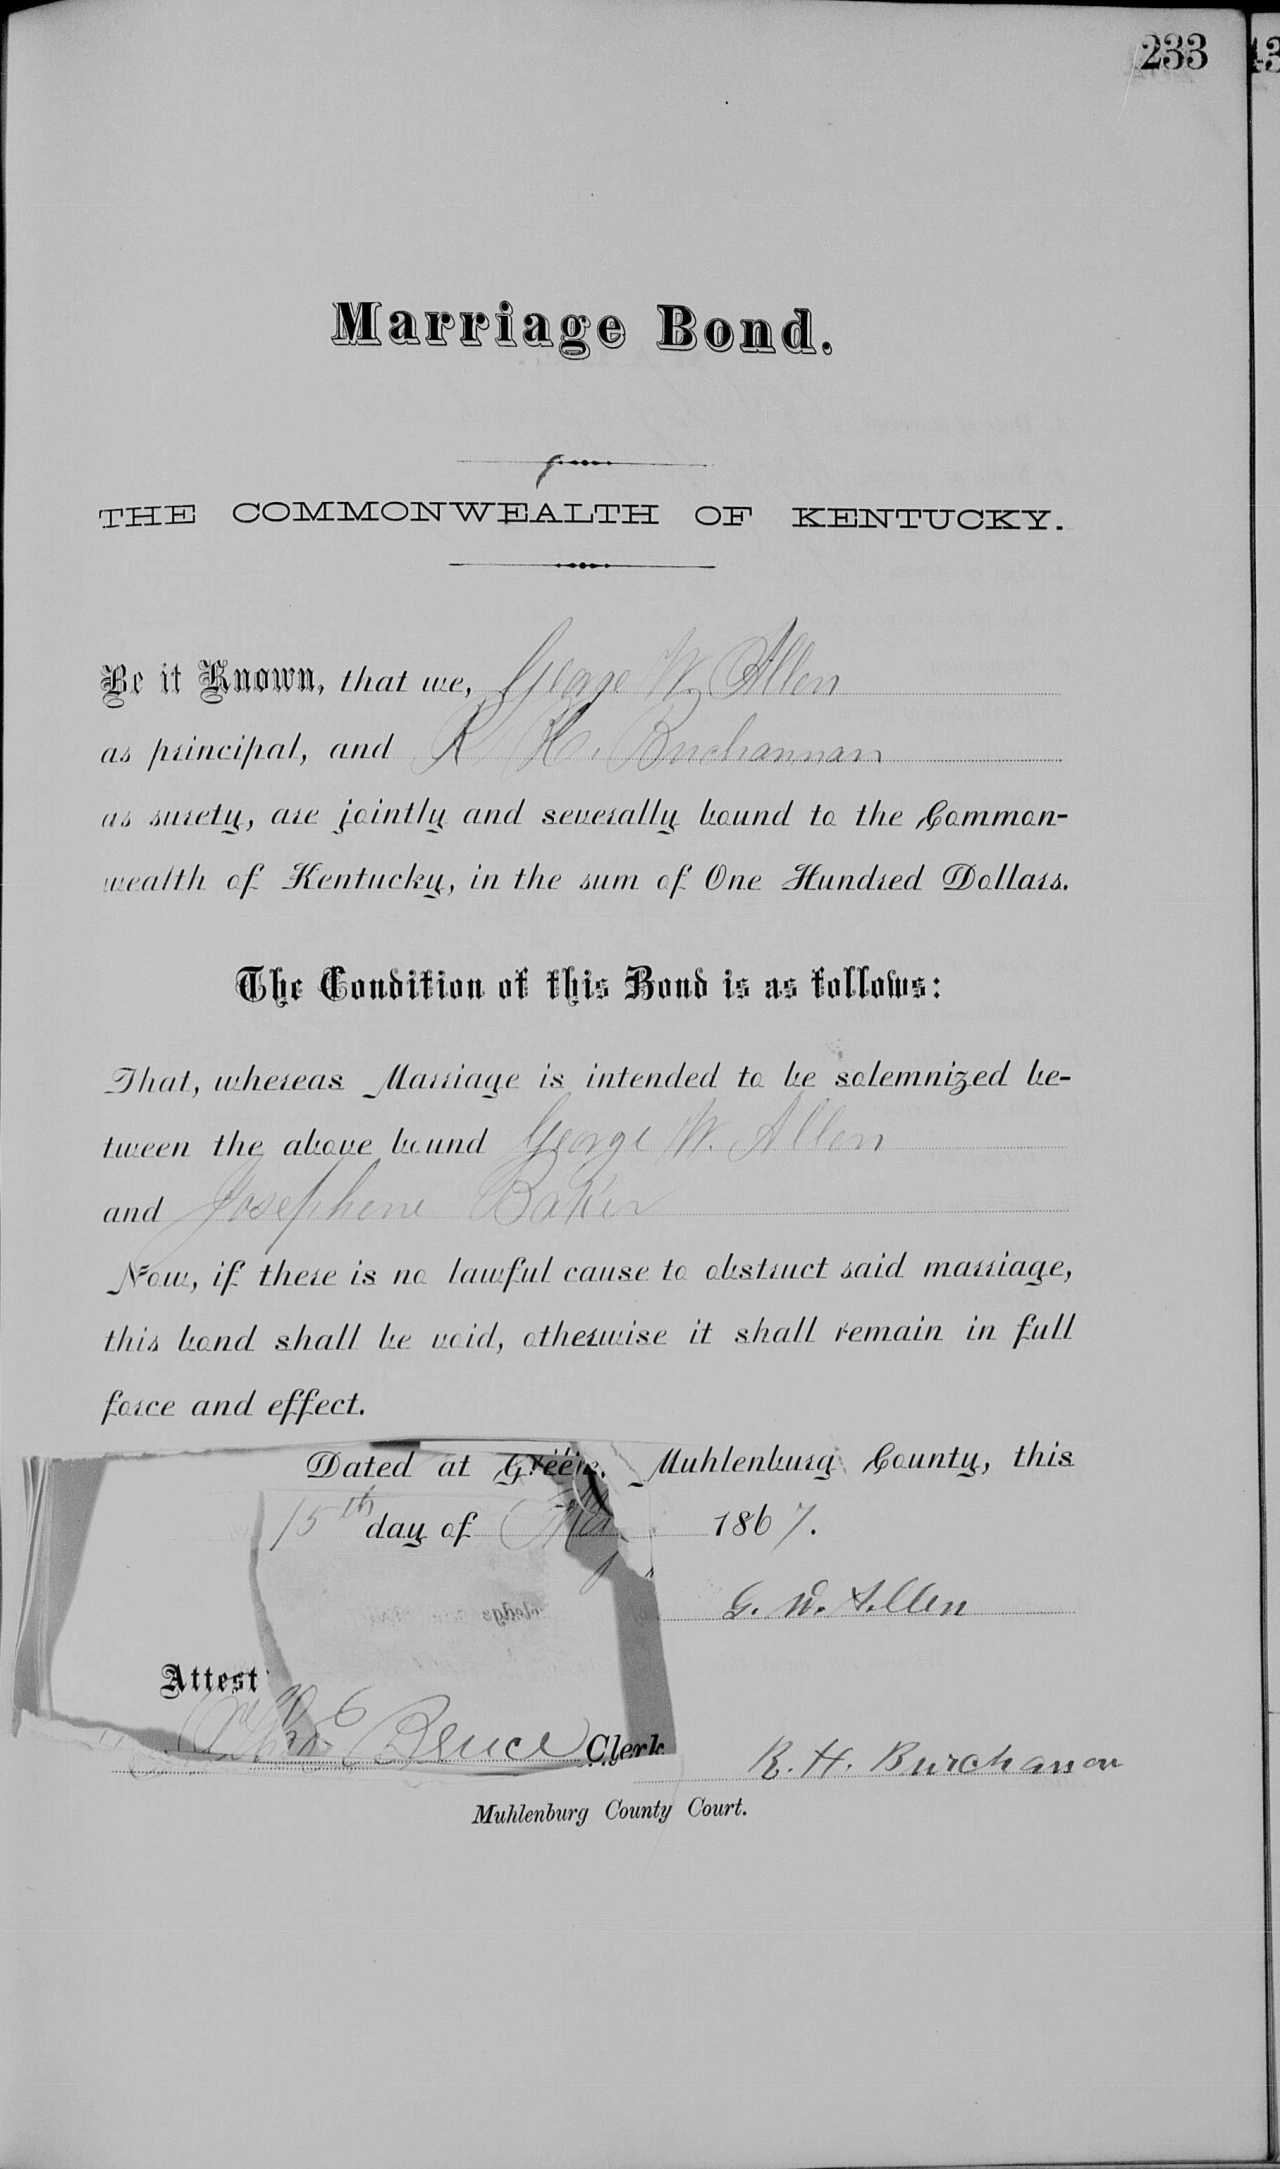 233
Marriage Bond.
THE COMMONWEALTH OF KENTUCKY.
Be it Known, that we, George W. Allen
as principal, and R. H. Buchannan
as surety, are jointly and severally bound to the Common-
wealth of Kentucky, in the sum of One Hundred Dollars.
The Condition of this Bond is as follows:
That, whereas Marriage is intended to be solemnized be-
tween the above bound George W. Allen
and Josephene Baker
Now, if there is no lawful cause to obstruct said marriage,
this bond shall be void, otherwise it shall remain in full
force and effect.
Dated at Muhlenburg County, this
15th day of 1867.
G. W. Allen
Attest
Bruce Clerk
R. H. Burchanan
Muhlenburg County Court.